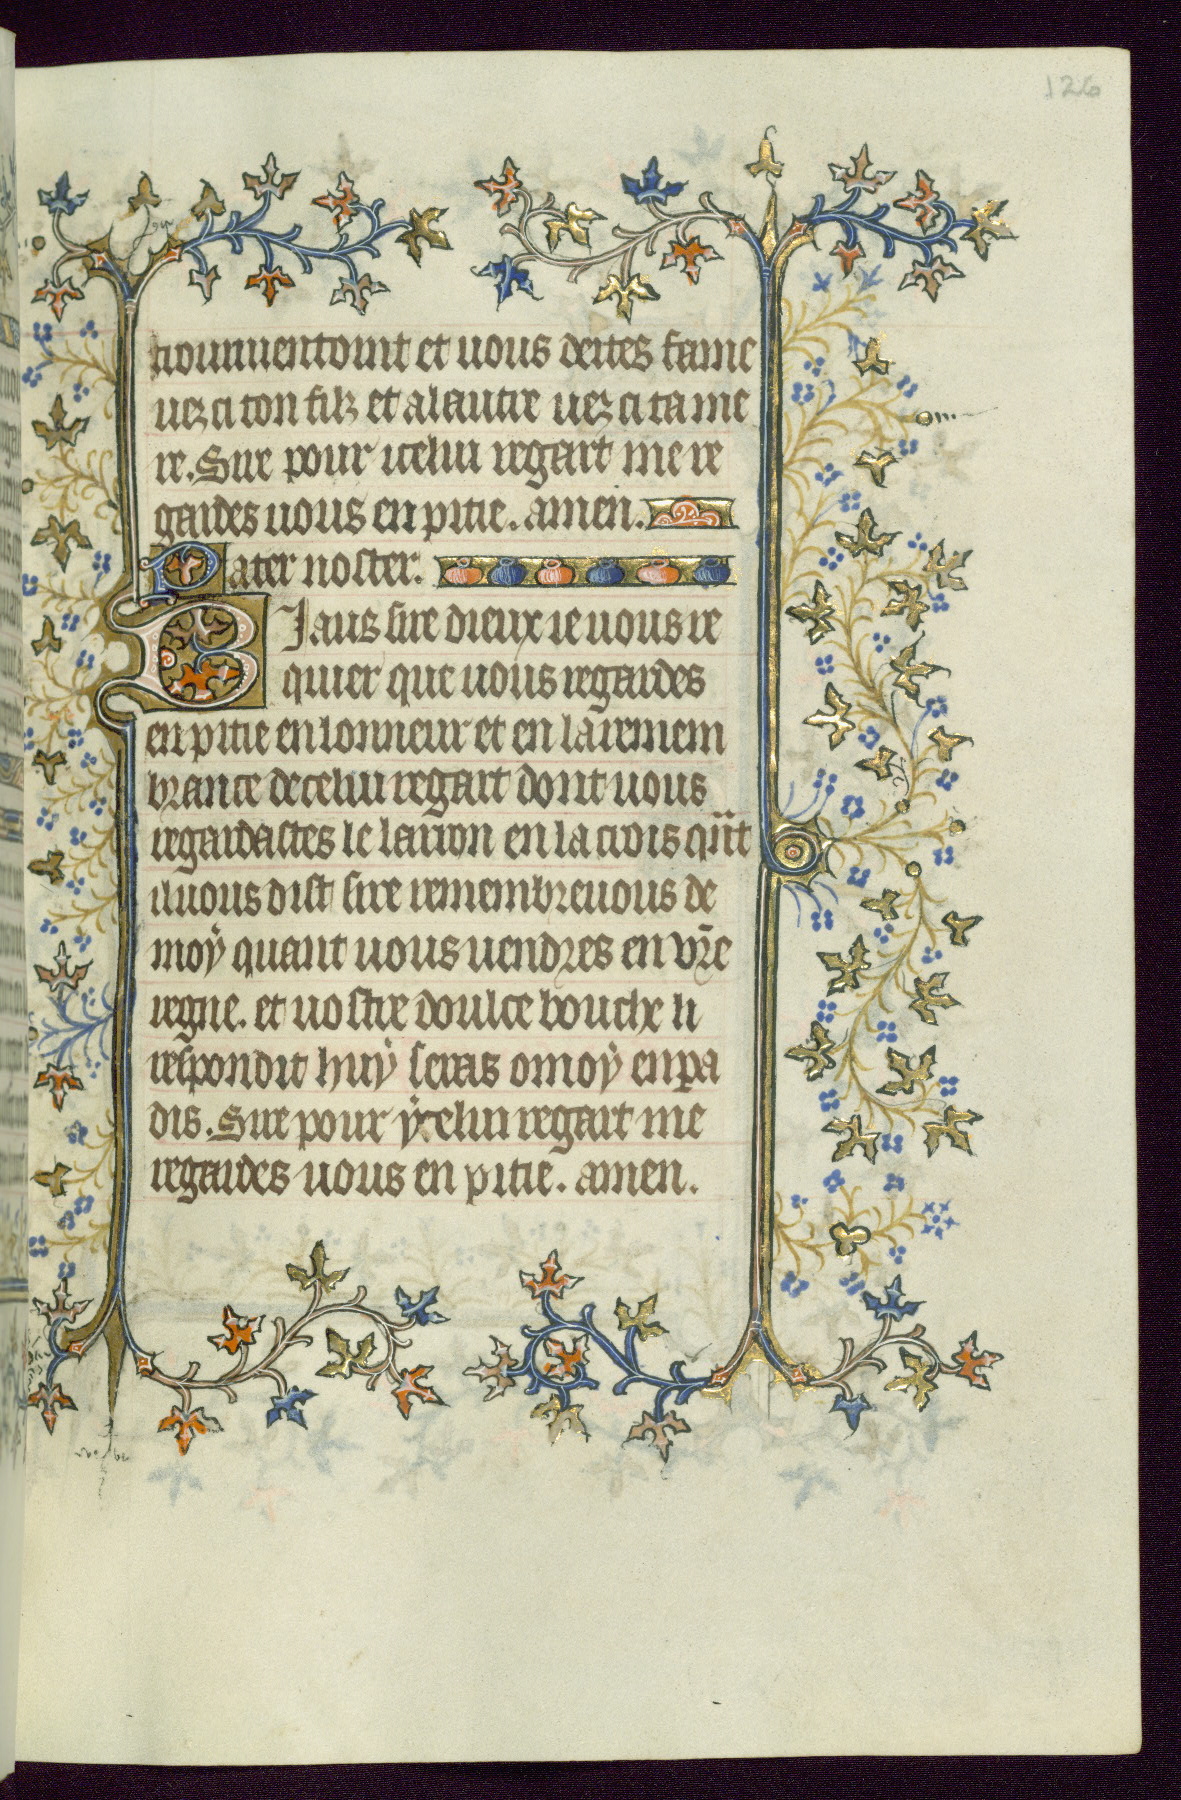 126
uous deites fame
uez ci ton filz et a lautre uez ci ta me
re. Sire pour icelui regart me re
gardes uous en pitie. amen.
Pater noster.
BIaus sire dieux ie uous re
quier que uous regardes
en pitie en lonneur et en la remem
brance de celui regart dont uous
regardastes le larron en la crois qñt
il uous dist sire remembre uous de
moy quant uous uendres en vr̄e
regne. et uostre doulce bouche li
respondit huy seras o moy en pa
dis. Sire pour ycelui regart me
regardes uous en pitie. amen.